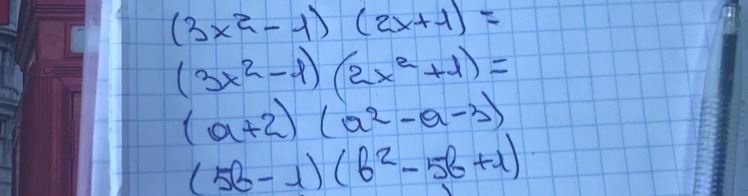 (3x² - 1) (2x + 1) =
(3x² - 1) (2x² + 1) =
(a + 2) (a² - a - 3)
(5b - 1) (b² - 5b + 1)